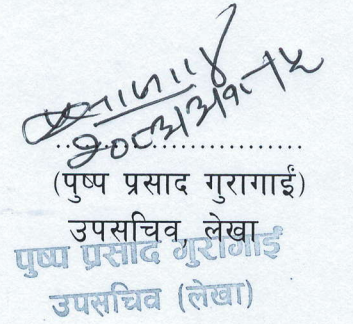 (पुष्प प्रसाद गुरागाईं)
उपसचिव लेखा
पुष्प प्रसाद गुरागाईं
उपसचिव (लेखा)